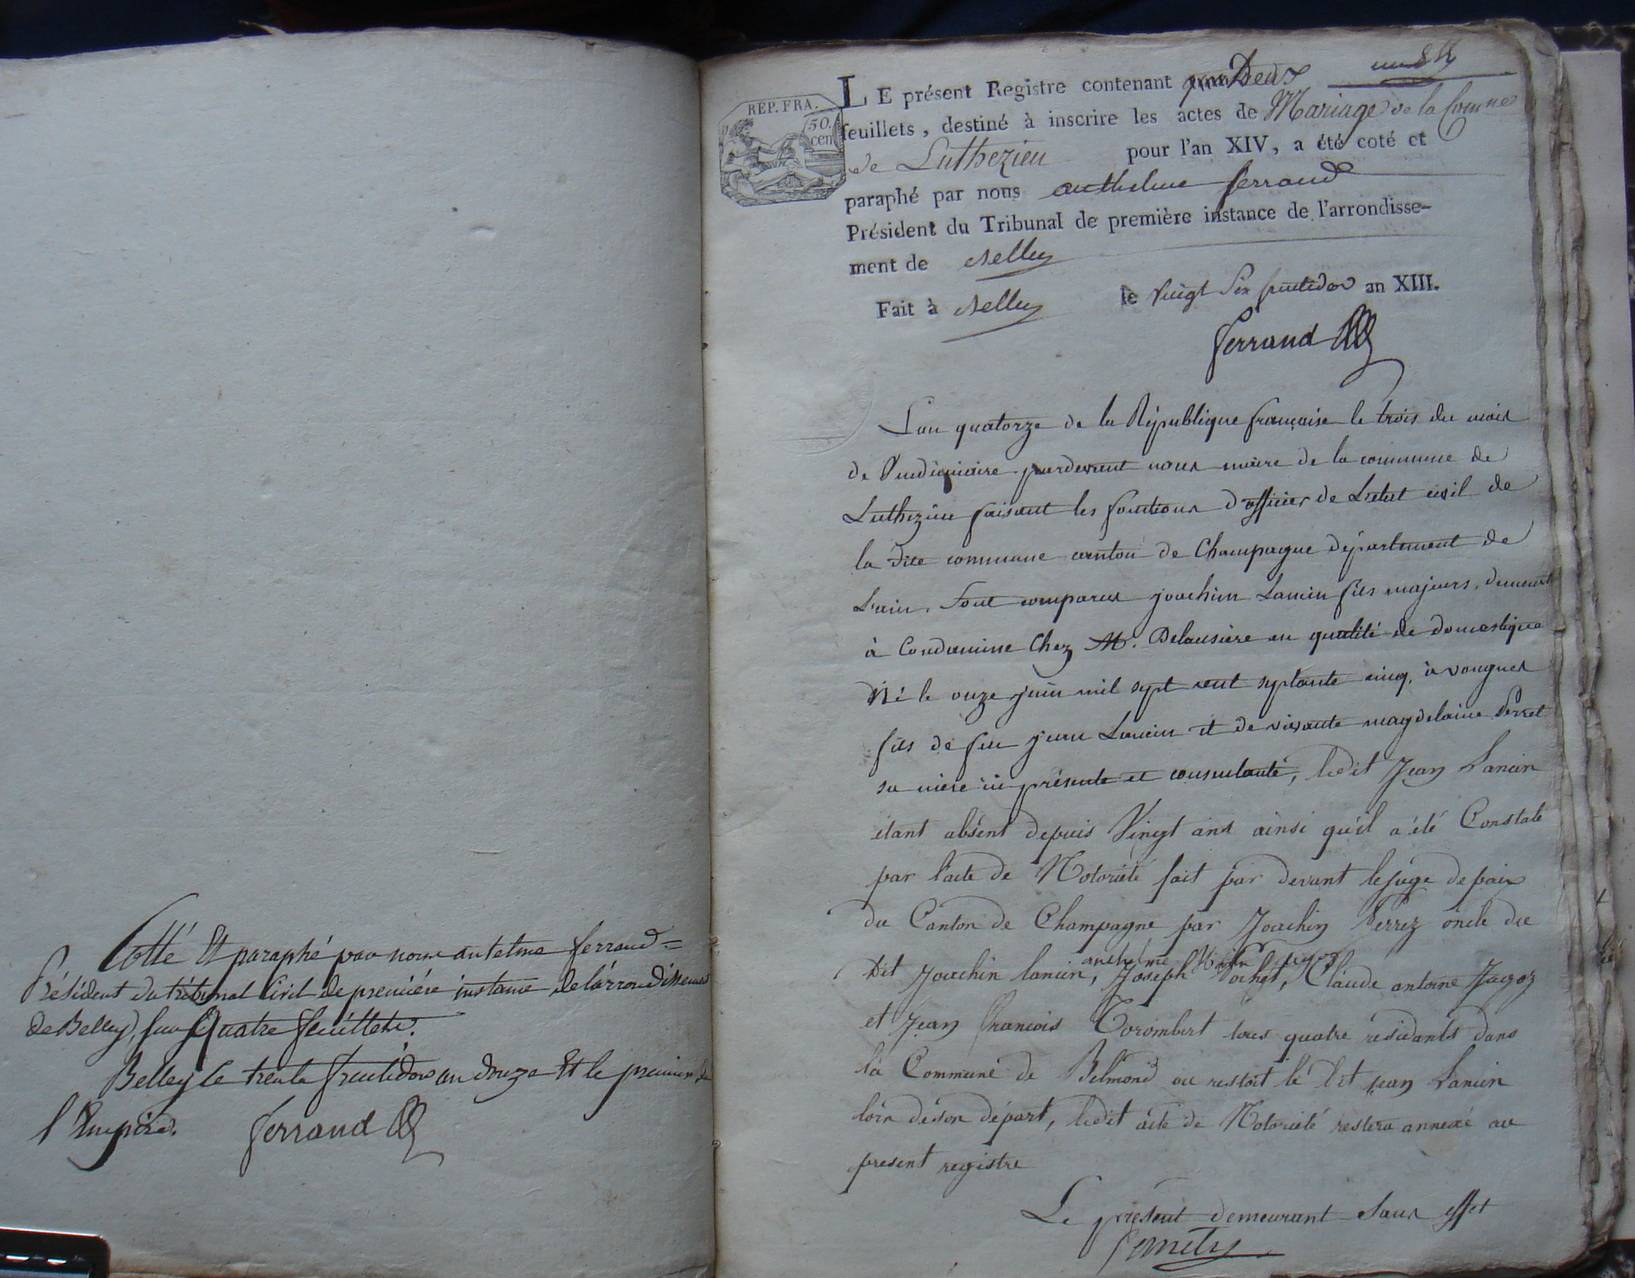 Cotté Et paraphé par nous antelme ferrand =
Président du tribunal Civil de première instance de l'arrondissement
de Belley, sur Quatre feuillets.
Belley le trente fructidor an douze Et le premier de
l'Empire. ferrand
REP. FRA.
50.
cen
LE présent Registre contenant Deux
feuillets, destiné à inscrire les actes de Mariage de la Comne
de Luthezieu pour l'an XIV, a été coté et
paraphé par nous anthelme ferrand
Président du Tribunal de première instance de l'arrondisse-
ment de Belley
Fait à Belley le vingt Six fructidor an XIII.
ferrand
L'an quatorze de la République française le trois du mois
de Vendémiaire pardevant nous maire de la commune de
Luthezieu faisant les fonctions d'officier de L'etat civil de
la dite commune canton de Champagne département de
L'ain. Sont comparus joachim Lancin fils majeurs, demeurt
à Condamine Chez Mr. Delausière en qualité de domestique
Né le onze juin mil sept cent septante cinq, à vongnes
fils de feu jean Lancin et de vivante magdelaine Perret
sa mère ici présente et consentante, ledit Jean Lancin
étant absent depuis Vingt ans ainsi qu'il a été Constaté
par l'acte de Notoriété fait par devant le juge de paix
du Canton de Champagne par Joachin Perrez oncle du
dit Joachin lancin, Joseph Pochet, Claude antoine Jagoz
anthelme
et Jean francois Corombert tous quatre résidants dans
la Commune de Belmond ou restoit le dit jean Lancin
lors de son départ, ledit acte de Notoriété restera annexé au
present registre
Le présent demeurant Sans effet